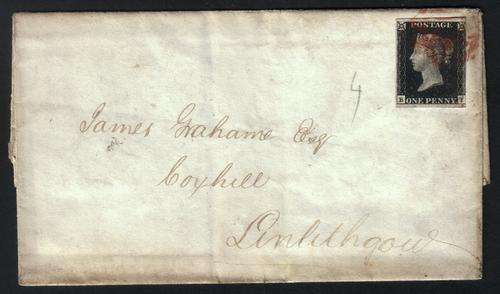 POSTAGE
ONE PENNY
4
James Grahame Esq
Coxhill
Linlithgow